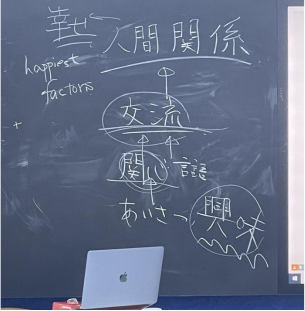 幸せ 人間関係
happiest
factors
交流
関心 言語
あいさつ 興味